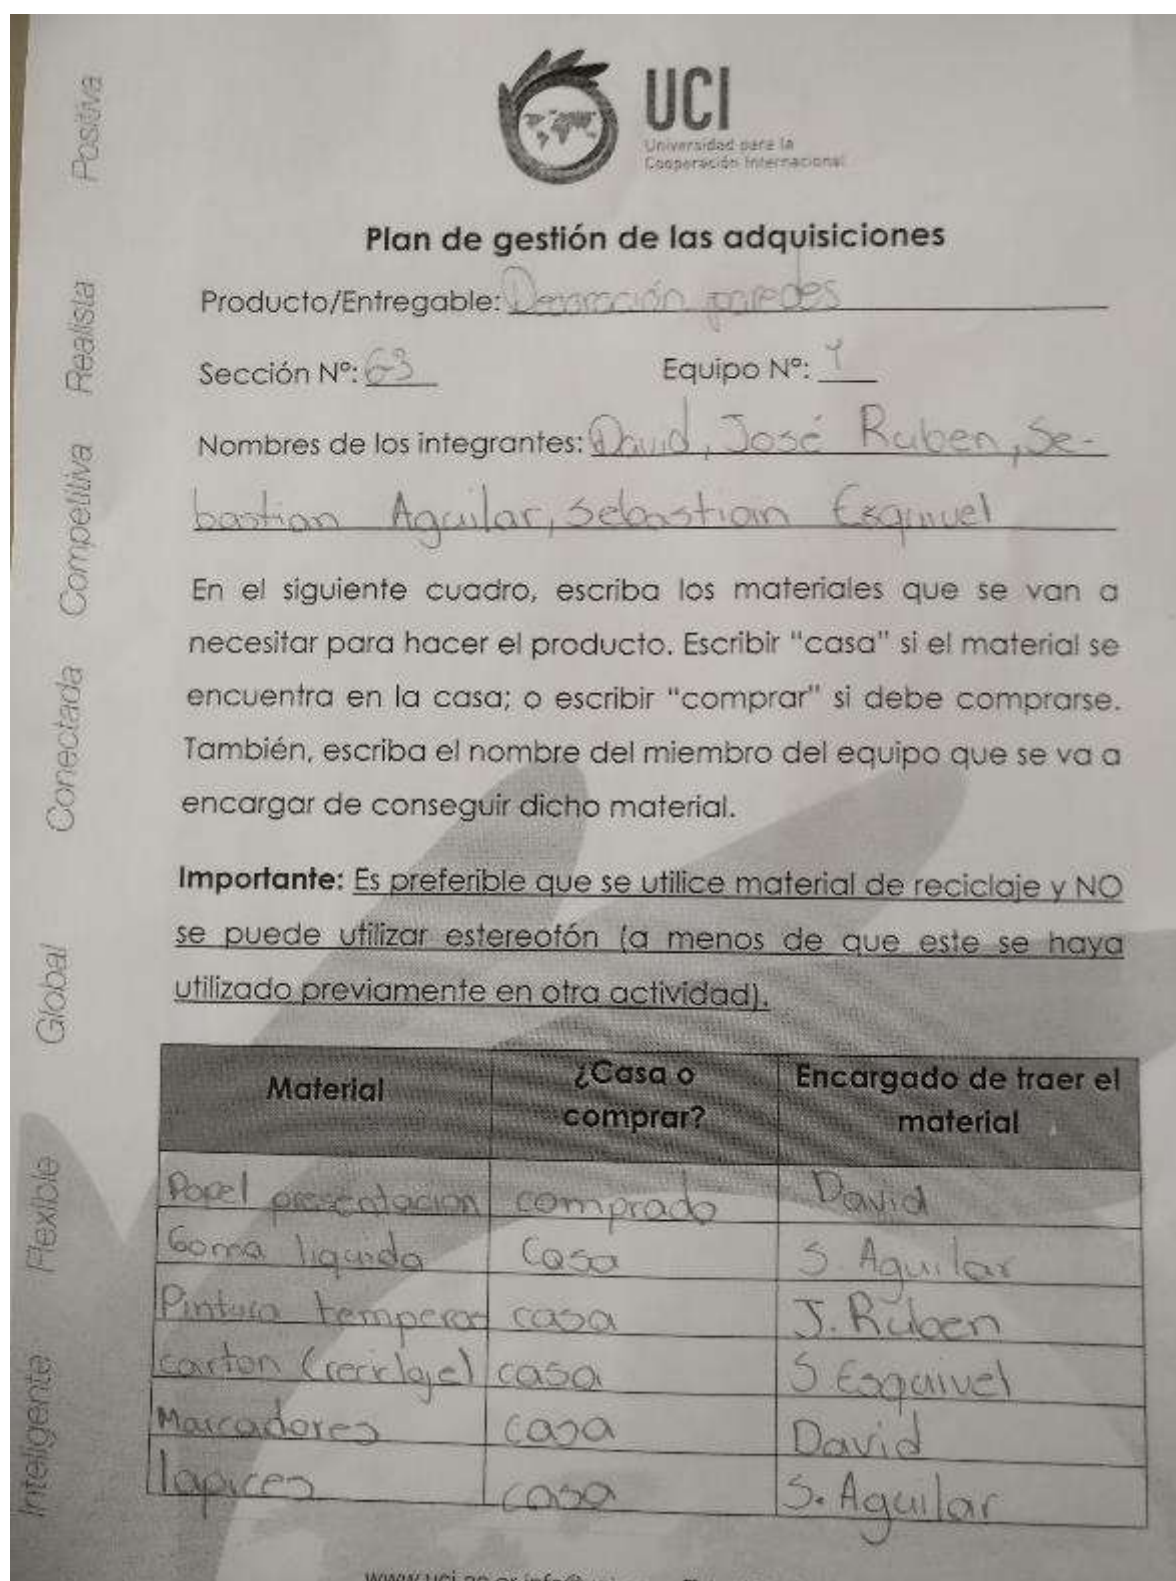 UCI
Universidad para la
Cooperación Internacional
Plan de gestión de las adquisiciones
Producto/Entregable: Decoración paredes
Sección N°: 6-3 Equipo N°: 1
Nombres de los integrantes: David, José Ruben, Se-
bastian Aguilar, Sebastian Esquivel
En el siguiente cuadro, escriba los materiales que se van a
necesitar para hacer el producto. Escribir "casa" si el material se
encuentra en la casa; o escribir "comprar" si debe comprarse.
También, escriba el nombre del miembro del equipo que se va a
encargar de conseguir dicho material.
Importante: Es preferible que se utilice material de reciclaje y NO
se puede utilizar estereofón (a menos de que este se haya
utilizado previamente en otra actividad).
Material ¿Casa o comprar? Encargado de traer el material
Papel presentacion comprado David
Goma liquida Casa S. Aguilar
Pintura temperas casa J. Ruben
carton (reciclaje) casa S Esquivel
Marcadores casa David
lapices casa S. Aguilar
Positiva
Realista
Competitiva
Conectada
Global
Flexible
Inteligente